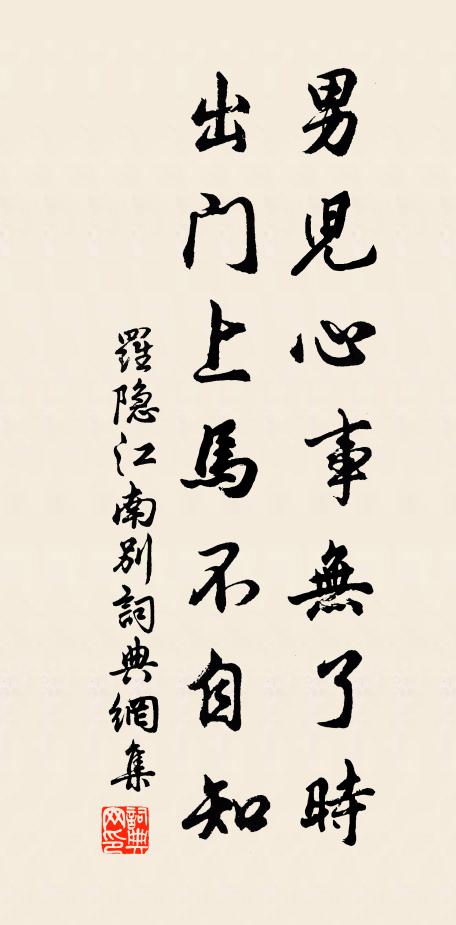 男兒心事無了時
出門上馬不自知
羅隐江南别詞典網集
詞典网印